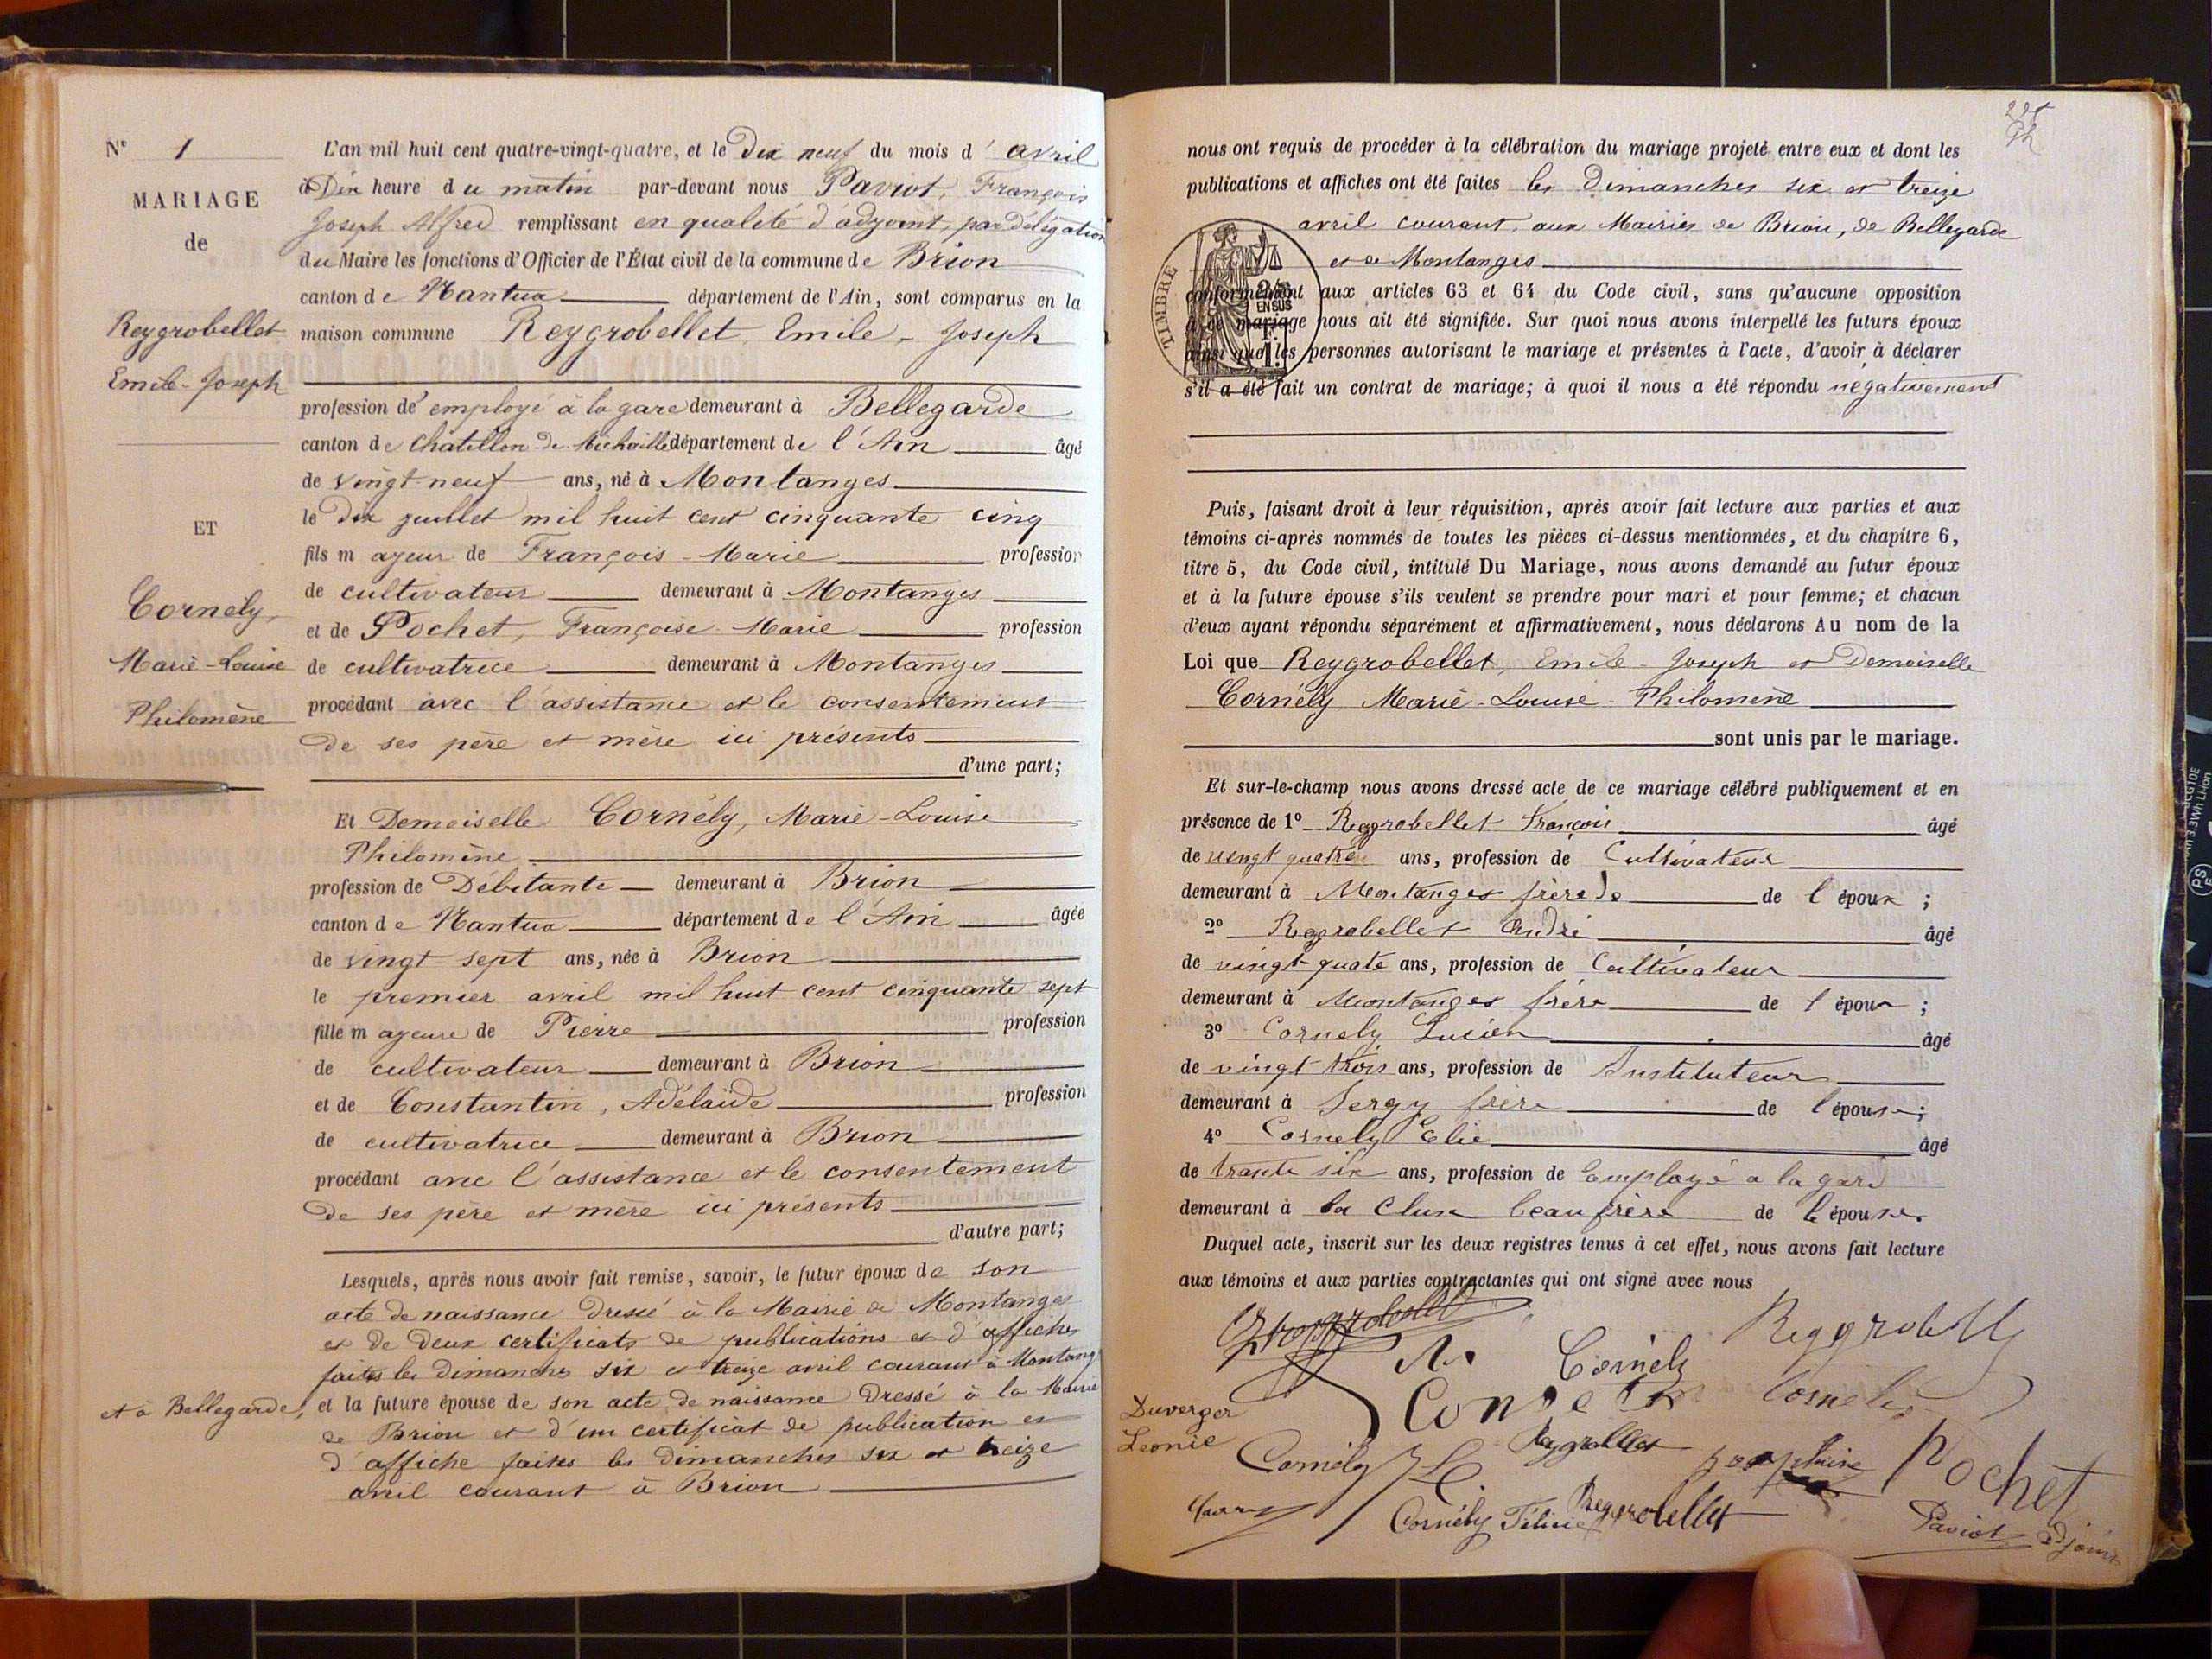 N° 1
MARIAGE
de
Reygrobellet
Emile-Joseph
ET
Cornély,
Marie-Louise
Philomène
L'an mil huit cent quatre-vingt-quatre, et le Dix neuf du mois d' avril
à Dix heure du matin par-devant nous Paviot, François
Joseph Alfred remplissant en qualité d'adjoint, par délégation
du Maire les fonctions d'Officier de l'État civil de la commune de Brion
canton de Nantua département de l'Ain, sont comparus en la
maison commune Reygrobellet, Emile-Joseph
profession de employé à la gare demeurant à Bellegarde
canton de Châtillon de Michaille département de l'Ain âgé
de vingt-neuf ans, né à Montanges
le dix juillet mil huit cent cinquante cinq
fils majeur de François-Marie profession
de cultivateur demeurant à Montanges
et de Pochet, Françoise-Marie profession
de cultivatrice demeurant à Montanges
procédant avec l'assistance et le consentement
de ses père et mère ici présents
d'une part;
Et Demoiselle Cornély, Marie-Louise
Philomène
profession de Débitante demeurant à Brion
canton de Nantua département de l'Ain âgée
de vingt sept ans, née à Brion
le premier avril mil huit cent cinquante sept
fille majeure de Pierre profession
de cultivateur demeurant à Brion
et de Constantin, Adélaïde profession
de cultivatrice demeurant à Brion
procédant avec l'assistance et le consentement
de ses père et mère ici présents
d'autre part;
Lesquels, après nous avoir fait remise, savoir, le futur époux de son
acte de naissance dressé à la Mairie de Montanges
et de deux certificats de publications et d'affiches
faites les dimanches six et treize avril courant à Montang
et à Bellegarde, et la future épouse de son acte de naissance dressé à la Mairie
de Brion et d'un certificat de publication et
d'affiche faites les dimanches six et treize
avril courant à Brion
nous ont requis de procéder à la célébration du mariage projeté entre eux et dont les
publications et affiches ont été faites les dimanches six et treize
avril courant, aux Mairies de Brion, de Bellegarde
et de Montanges
TIMBRE
EN SUS
conformément aux articles 63 et 64 du Code civil, sans qu'aucune opposition
à ce mariage nous ait été signifiée. Sur quoi nous avons interpellé les futurs époux
ainsi que les personnes autorisant le mariage et présentes à l'acte, d'avoir à déclarer
s'il a été fait un contrat de mariage; à quoi il nous a été répondu négativement
Puis, faisant droit à leur réquisition, après avoir fait lecture aux parties et aux
témoins ci-après nommés de toutes les pièces ci-dessus mentionnées, et du chapitre 6,
titre 5, du Code civil, intitulé Du Mariage, nous avons demandé au futur époux
et à la future épouse s'ils veulent se prendre pour mari et pour femme; et chacun
d'eux ayant répondu séparément et affirmativement, nous déclarons Au nom de la
Loi que Reygrobellet, Emile-Joseph et Demoiselle
Cornély Marie-Louise-Philomène
sont unis par le mariage.
Et sur-le-champ nous avons dressé acte de ce mariage célébré publiquement et en
présence de 1° Reygrobellet François âgé
de vingt quatre ans, profession de Cultivateur
demeurant à Montanges frère de de l'époux ;
2° Reygrobellet André âgé
de vingt-quate ans, profession de Cultivateur
demeurant à Montanges frère de l'époux ;
3° Cornely Lucien âgé
de vingt trois ans, profession de Instituteur
demeurant à Sergy frère de l'épouse;
4° Cornely Elie âgé
de trante six ans, profession de Employé a la gare
demeurant à la Cluse beau frère de l'épouse.
Duquel acte, inscrit sur les deux registres tenus à cet effet, nous avons fait lecture
aux témoins et aux parties contractantes qui ont signé avec nous
Cornély
Duverger
Leonie
Cornély
Pochet
Cornély Félicie Reygrobellet
Paviot adjoint